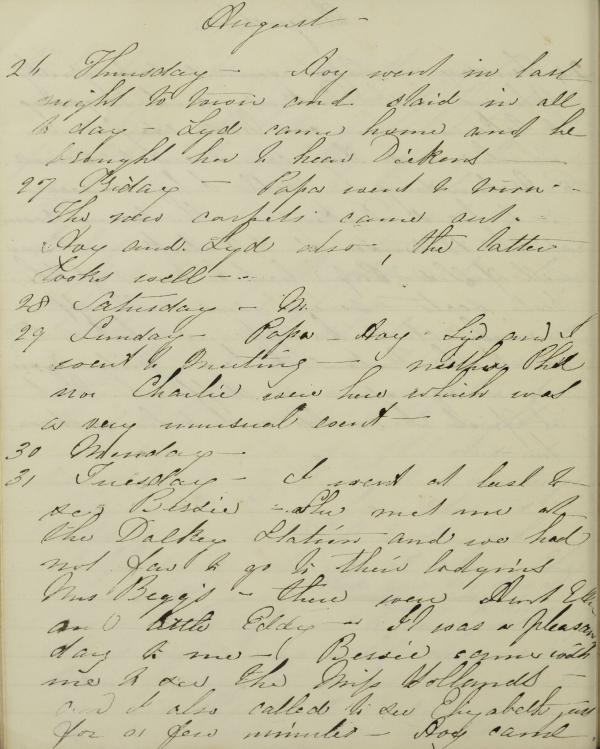 August -
26 Thursday - Roy went in last
night to town and staid in all
to day - Lyd came home and he
brought her to hear Dickens
27 Friday - Papa went to town -
The new carpets came out -
Roy and Lyd also, the latter
looks well -
28 Saturday - M.
29 Sunday - Papa - Roy - Lyd and I
went to meeting - neither Phil
nor Charlie were here which was
a very unusual event -
30 Monday -
31 Tuesday - I went at last to
see Bessie - She met me at
the Dalkey Station and we had
not far to go to their lodgins
Mrs Beggs - there were Aunt
and little Eddy - It was a pleasant
day to me - Bessie came with
me to see the Miss Hollands -
and I also called to see Elizabeth just
for a few minutes - Roy came